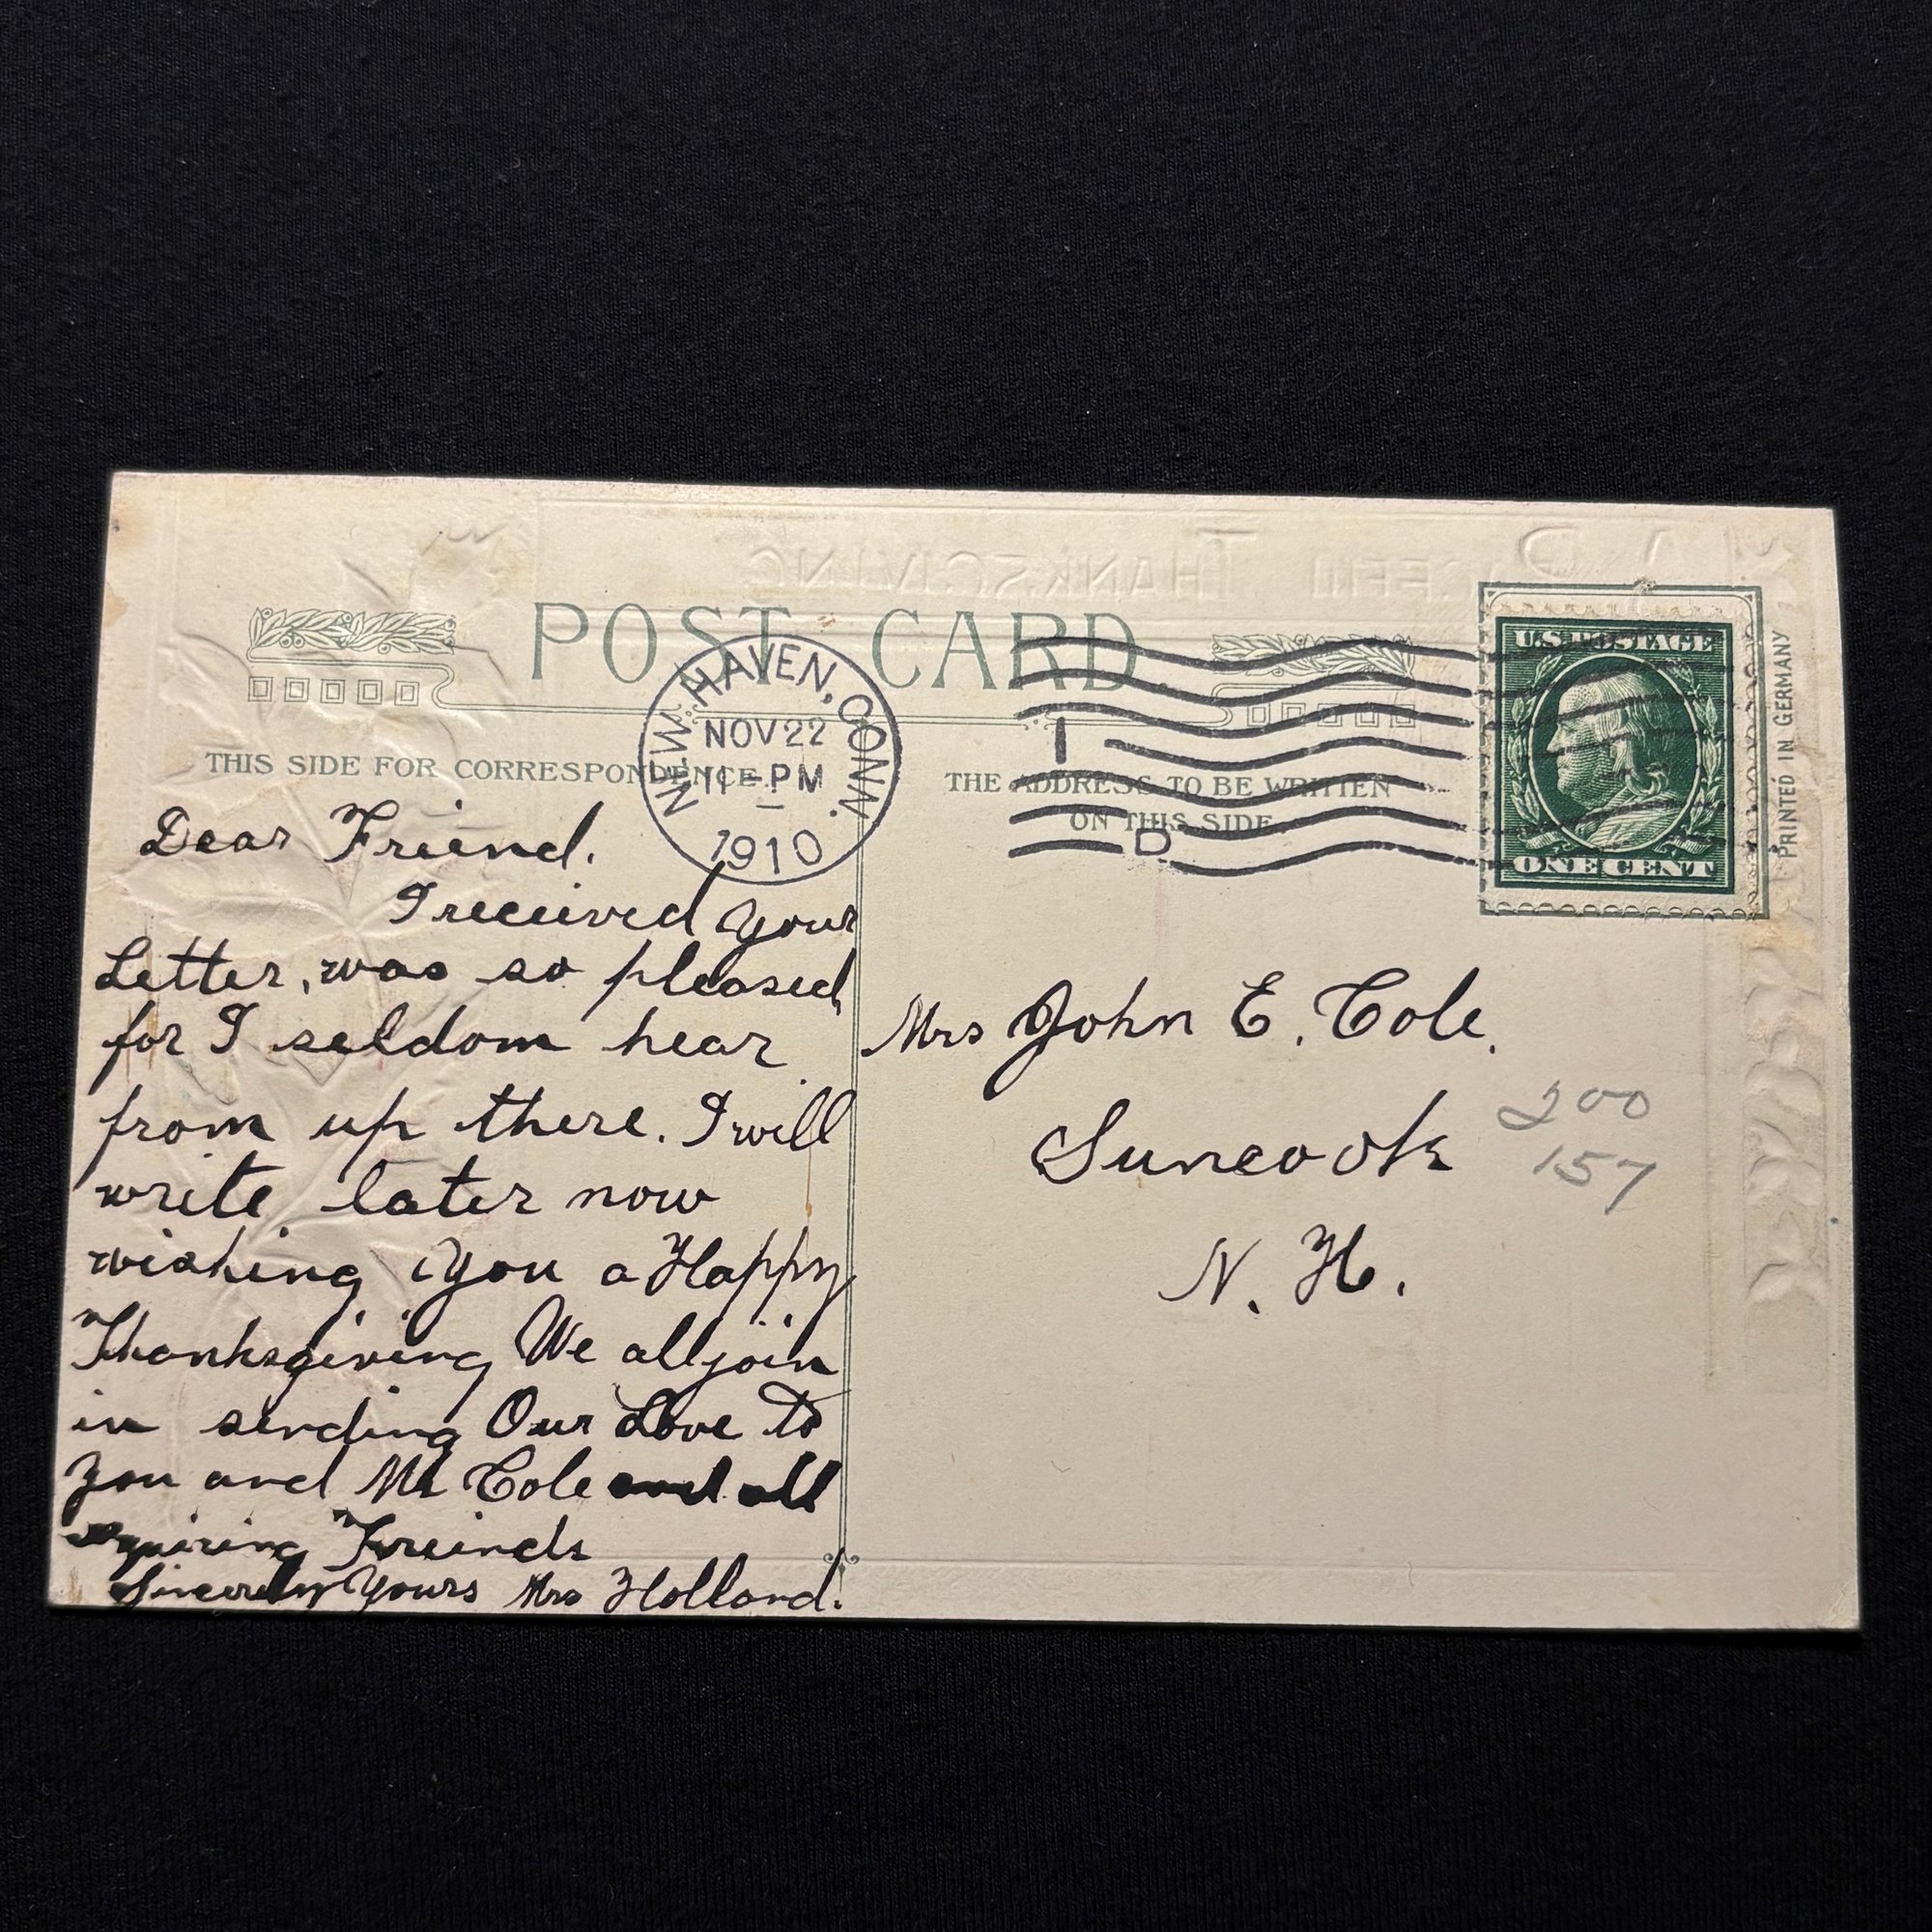 A PEACEFUL THANKSGIVING
POST CARD
NEW HAVEN, CONN.
NOV 22
11 - PM
1910
1
D
U.S. POSTAGE
ONE CENT
PRINTED IN GERMANY
THIS SIDE FOR CORRESPONDENCE
THE ADDRESS TO BE WRITTEN
ON THIS SIDE.
Dear Friend.
I received your
Letter, was so pleased
for I seldom hear
from up there. I will
write later now
wishing you a Happy
Thanksgiving We all join
in sending Our Love to
you and Mr Cole and all
Freinds
Sincerely Yours Mrs Holland.
Mrs John E. Cole.
Suncook
N. H.
200
157